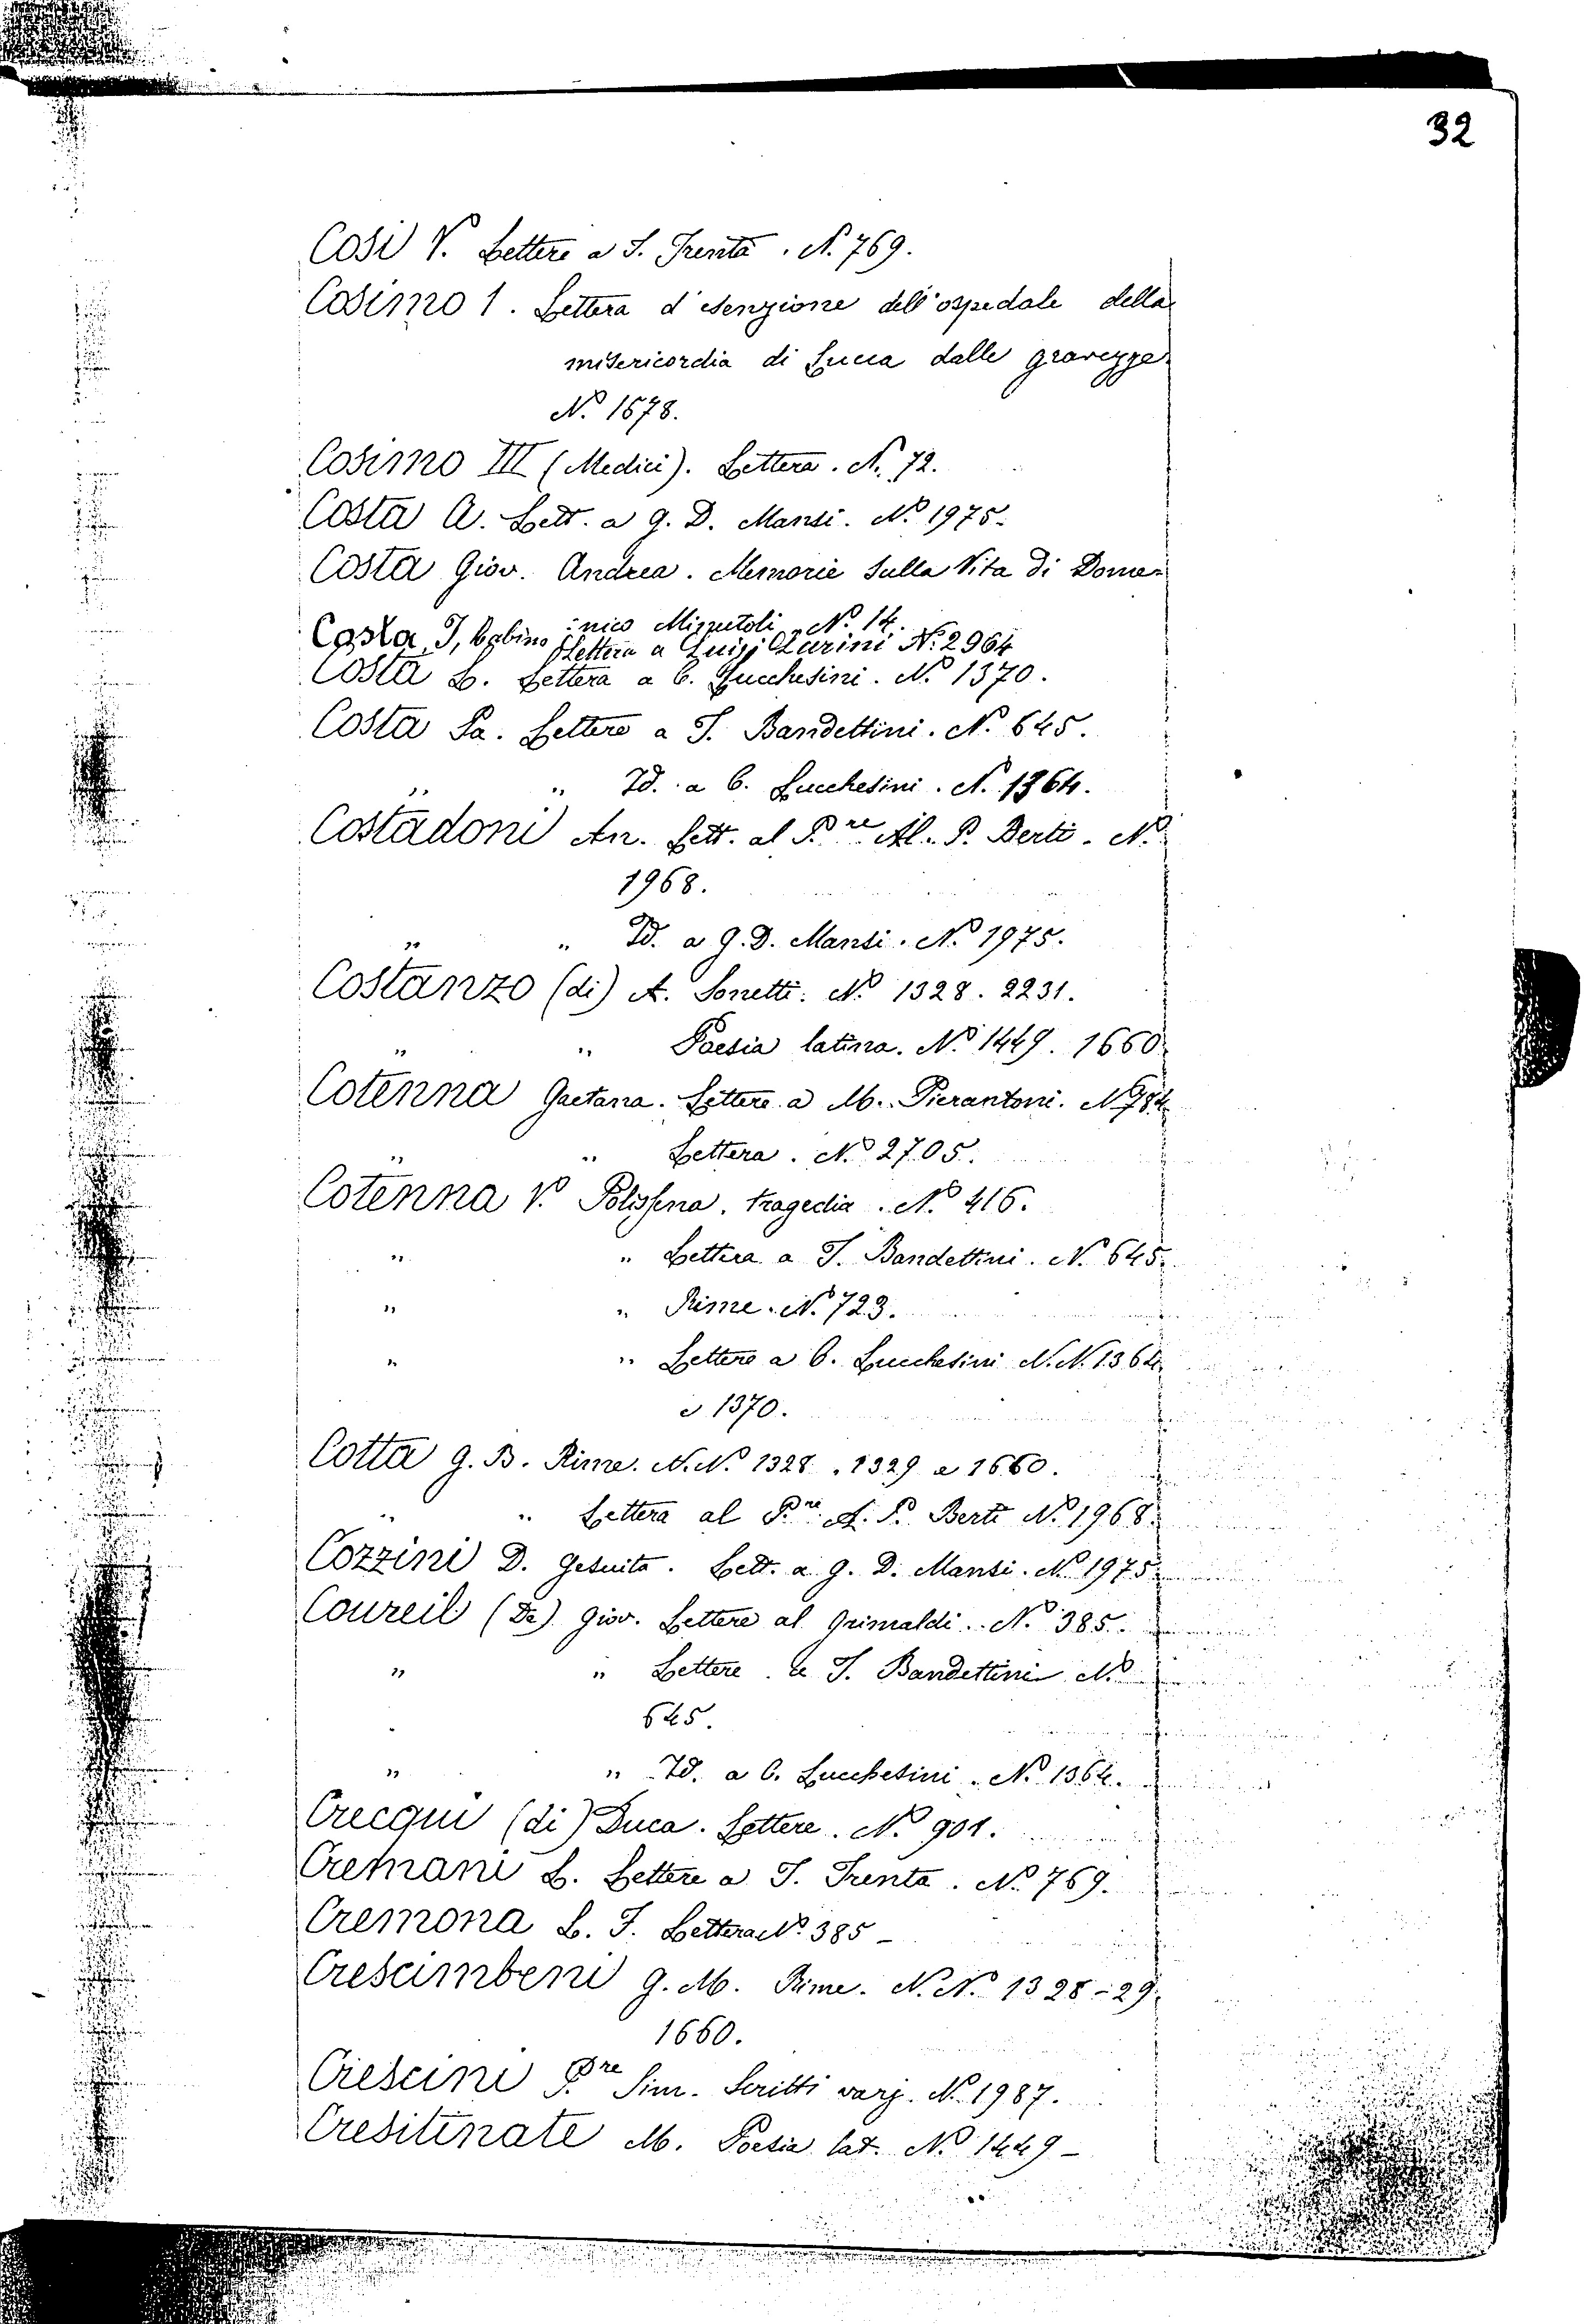 32
Cosi V. Lettere a T. Trenta. N. 769.
Cosimo 1. Lettera d'esenzione dell'ospedale della
misericordia di Lucca dalle gravezze
N.º 1678.
Cosimo III (Medici). Lettera. N. 72.
Costa A. Lett. a G. D. Mansi. Nº 1975.
Costa Giov. Andrea. Memorie sulla Vita di Dome-
:nico Mignetoli. Nº 14.
Costa, J, Lettera a Luigi Nº 2964
Costa L. Lettera a C. Lucchesini. Nº 1370.
Costa Pa. Lettere a T. Bandettini. N. 645.
" " Id. a C. Lucchesini. N. 1364.
Costadoni An. Lett. al P.re Al. P. Berti. Nº
1968.
" " Id. a G. D. Mansi. Nº 1975.
Costanzo (di) A. Sonetti. Nº 1328. 2231.
" " Poesia latina. Nº 1449. 1660
Cotenna Gaetana. Lettere a M. Pierantoni. Nº 984
" " Lettera. Nº 2705.
Cotenna V. Polissena. tragedia. Nº 416.
" " Lettera a T. Bandettini. N. 645.
" " Rime. Nº 723.
" " Lettere a C. Lucchesini N.N. 1364
e 1370.
Cotta G. B. Rime. N.Nº 1328. 1329 e 1660.
" " Lettera al P.re A. P. Berti Nº 1968.
Cozzini D. Gesuita. Lett. a G. D. Mansi. Nº 1975
Coureil (De) Giov. Lettere al Grimaldi. Nº 385.
" " Lettere a T. Bandettini Nº
645.
" " Id. a C. Lucchesini. Nº 1364.
Crecqui (di) Duca. Lettere. Nº 901.
Cremani L. Lettere a T. Trenta. Nº 769.
Cremona L. F. Lettera Nº 385 -
Crescimbeni G. M. Rime. N. Nº 1328-29.
1660.
Crescini P.re Sim. Scritti varj. Nº 1987.
Cresitenate M. Poesia lat. Nº 1449 -